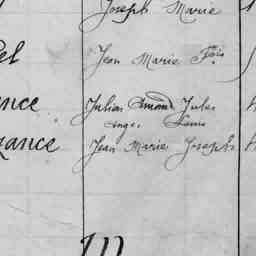 Joseph Marie
el Jean Marie Fois
ence Julien Amand Jules
ange Louis
zance Jean Marie Joseph
M